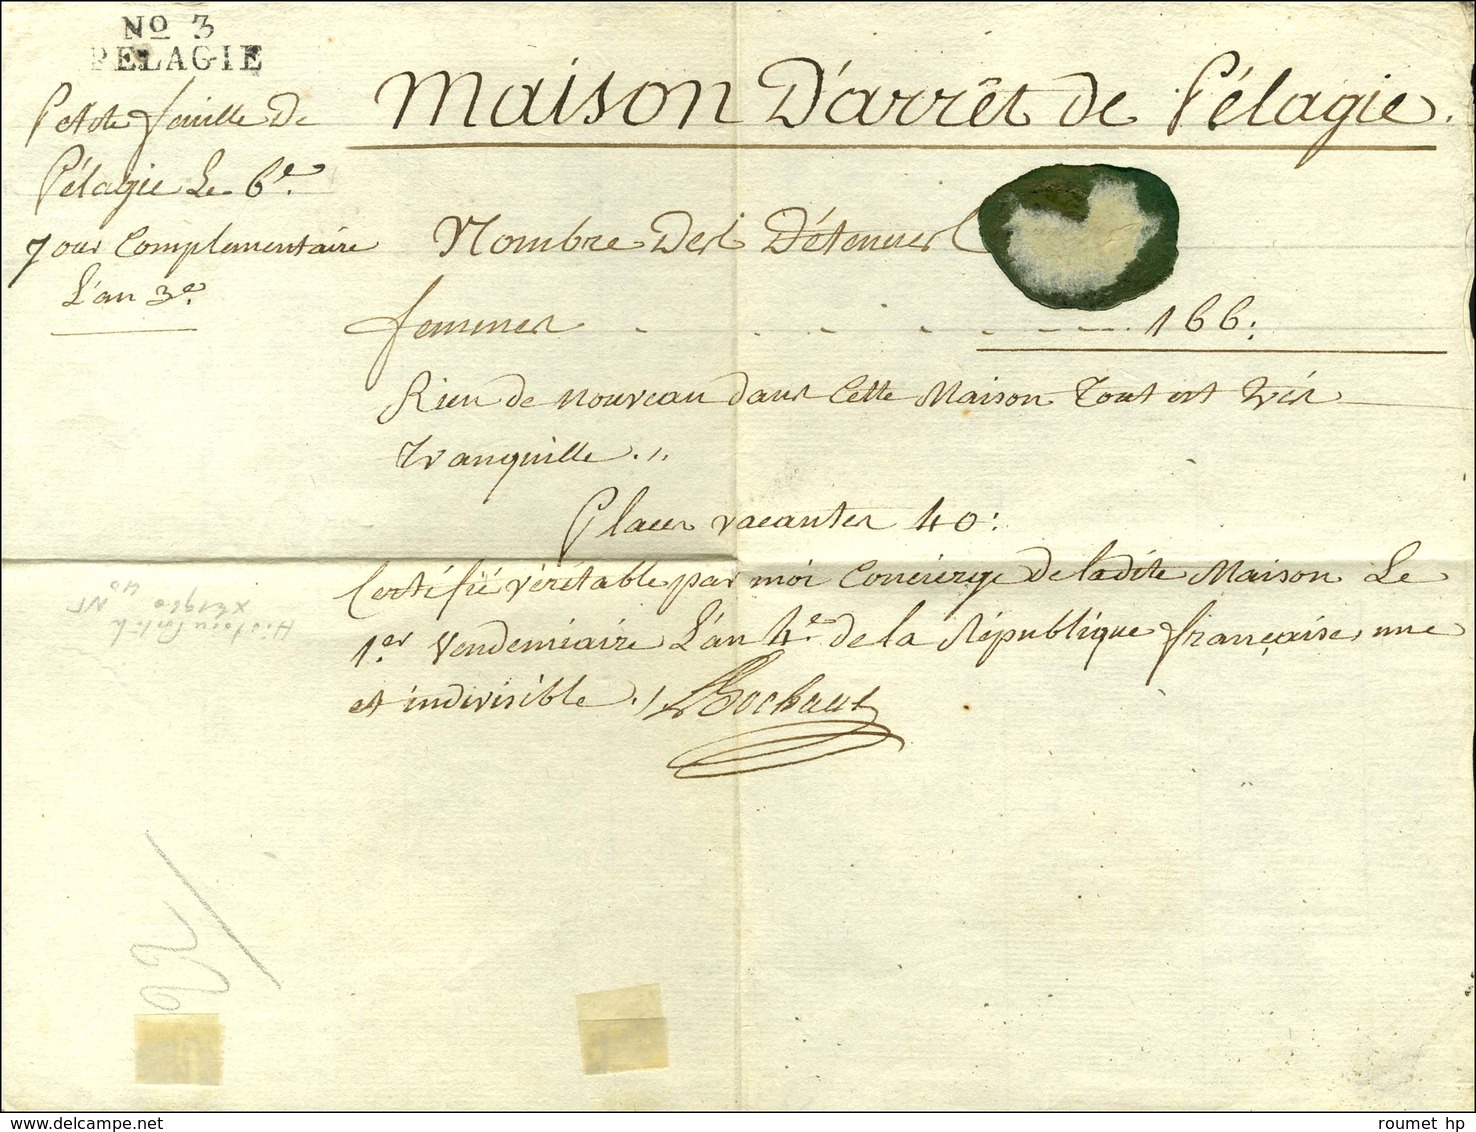 No 3
PELAGIE
Petite feuille De
Pélagie Le 6e.
Jour Complementaire
L'an 3e.
Maison D'arrêt de Pélagie.
Nombre Des Détenues
femmes - - - - - - - 166.
Rien de nouveau dans Cette Maison Tout est très
tranquille .,,
Places vacantes 40:
Certifié véritable par moi Concierge de ladite Maison Le
1er Vendemiaire L'an 4e de la République française, une
et indivisible ./.
www.delcampe.net
roumet hp